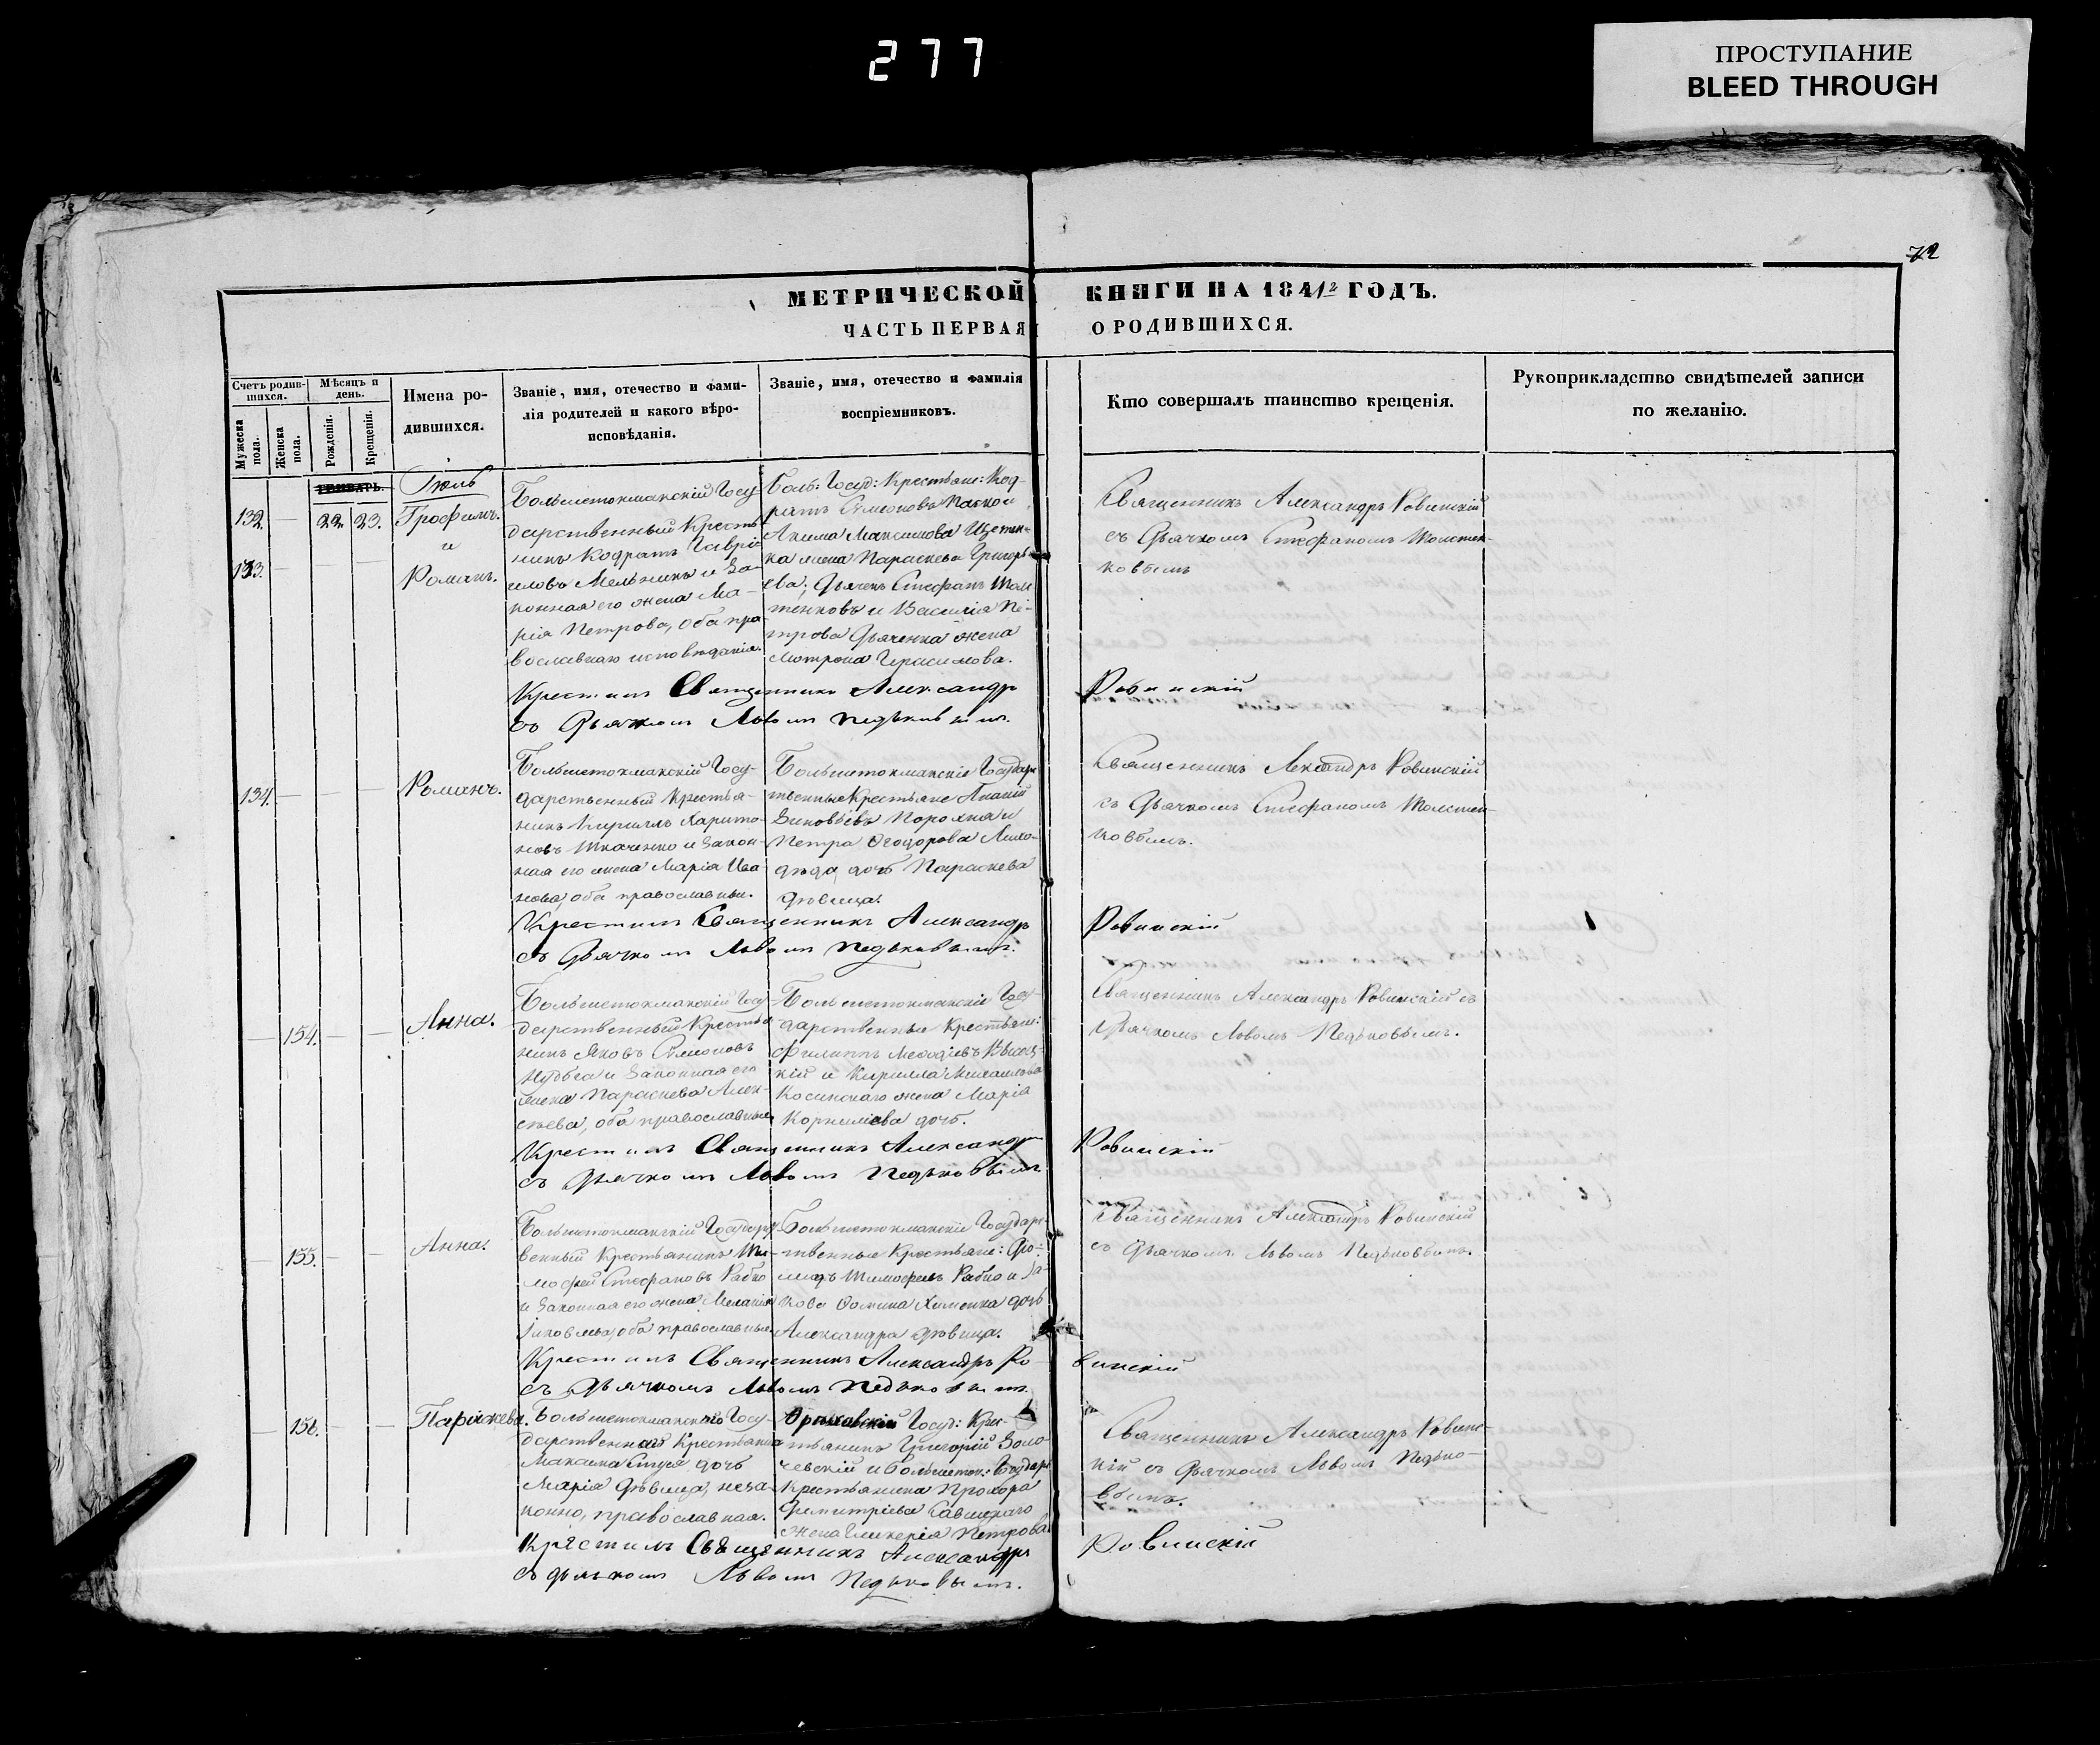 277
ПРОСТУПАНИЕ
BLEED THROUGH
72
МЕТРИЧЕСКОЙ КНИГИ НА 1842 ГОДЪ.
ЧАСТЬ ПЕРВАЯ О РОДИВШИХСЯ.
Счетъ родившихся.
Мужеска пола.
Женска пола.
Мѣсяцъ и день.
Рожденія.
Крещенія.
Имена родившихся.
Званіе, имя, отечество и фамилія родителей и какого вѣроисповѣданія.
Званіе, имя, отечество и фамилія воспріемниковъ.
Кто совершалъ таинство крещенія.
Рукоприкладство свидѣтелей записи по желанію.
ГЕНВАРЬ.
Іюль
132. — 22. 23. Трофимъ.
и
133. — — — Романъ.
Большетокмакскій Госу-
дарственный Крестья-
никъ Кодратъ Гаврі-
иловъ Мельникъ и За-
конная его жена Ма-
рія Петрова, оба пра-
вославнаго исповѣданія.
Боль: Госуд: Крестьяне: Код-
ратъ Симеоновъ
Акима Максимова
ка жена Параскева Григорь-
ева; Дьячекъ Стефанъ Толс-
тенковъ и Василія Пе-
трова Дьяченка жена
Мотрона Герасимова.
Священникъ Александръ Ровинскій
съ Дьячкомъ Стефаномъ Толстен-
ковымъ
Крестилъ Священникъ Александръ Ровинскій
съ Дьячкомъ Львомъ Педьковымъ.
134. — — — Романъ.
Большетокмакскій Госу-
дарственный Крестья-
никъ Кириллъ Харито-
новъ Ткаченко и Закон-
ная его жена Марія Ива-
нова, оба православные.
Большетокмакскіе Государс-
твенные Крестьяне Ананій
Зиновьевъ Порохня и
Петра Ѳеодорова
дочь Параскева
дѣвица.
Священникъ Александръ Ровинскій
съ Дьячкомъ Стефаномъ Толстен-
ковымъ.
Крестилъ Священникъ Александръ Ровинскій
съ Дьячкомъ Львомъ Педьковымъ.
— 154. — — Анна.
Большетокмакскій Госу-
дарственный Крестья-
никъ Яковъ Симеоновъ
и Законная его
жена Параскева Алек-
сѣева, оба православные
Большетокмакскіе Госу-
дарственные Крестьяне:
Филиппъ Меѳодіевъ Высоц-
кій и Кирилла Михайлова
Косинскаго жена Марія
Корниліева дочь.
Священникъ Александръ Ровинскій съ
Дьячкомъ Львомъ Педьковымъ.
Крестилъ Священникъ Александръ Ровинскій
съ Дьячкомъ Львомъ Педьковымъ
— 155. — — Анна.
Большетокмакскій Государст-
венный Крестьянинъ Ти-
мофей Стефановъ Рябко
и Законная его жена Меланія
Іаковлева, оба православные.
Большетокмакскіе Государс-
твенные Крестьяне:
Тимофеевъ Рябко и Іа-
кова Ѳомина Хименка дочь
Александра дѣвица.
Священникъ Александръ Ровинскій
съ Дьячкомъ Львомъ Педьковымъ.
Крестилъ Священникъ Александръ Ровинскій
съ Дьячкомъ Львомъ Педьковымъ.
— 156. — — Параскева.
Большетокмакскаго Госу-
дарственнаго Крестьянина
Максима дочь
Марія дѣвица, неза-
конно, православная.
Орѣховскій Госуд: Крес-
тьянинъ Григорій Золо-
чевскій и Большеток: Государс:
Крестьянина Прохора
Димитріева Савицкаго
жена Гликерія Петрова
Священникъ Александръ Ровинс-
кій съ Дьячкомъ Львомъ Педько-
вымъ.
Крестилъ Священникъ Александръ Ровинскій
съ дьячкомъ Львомъ Педьковымъ.